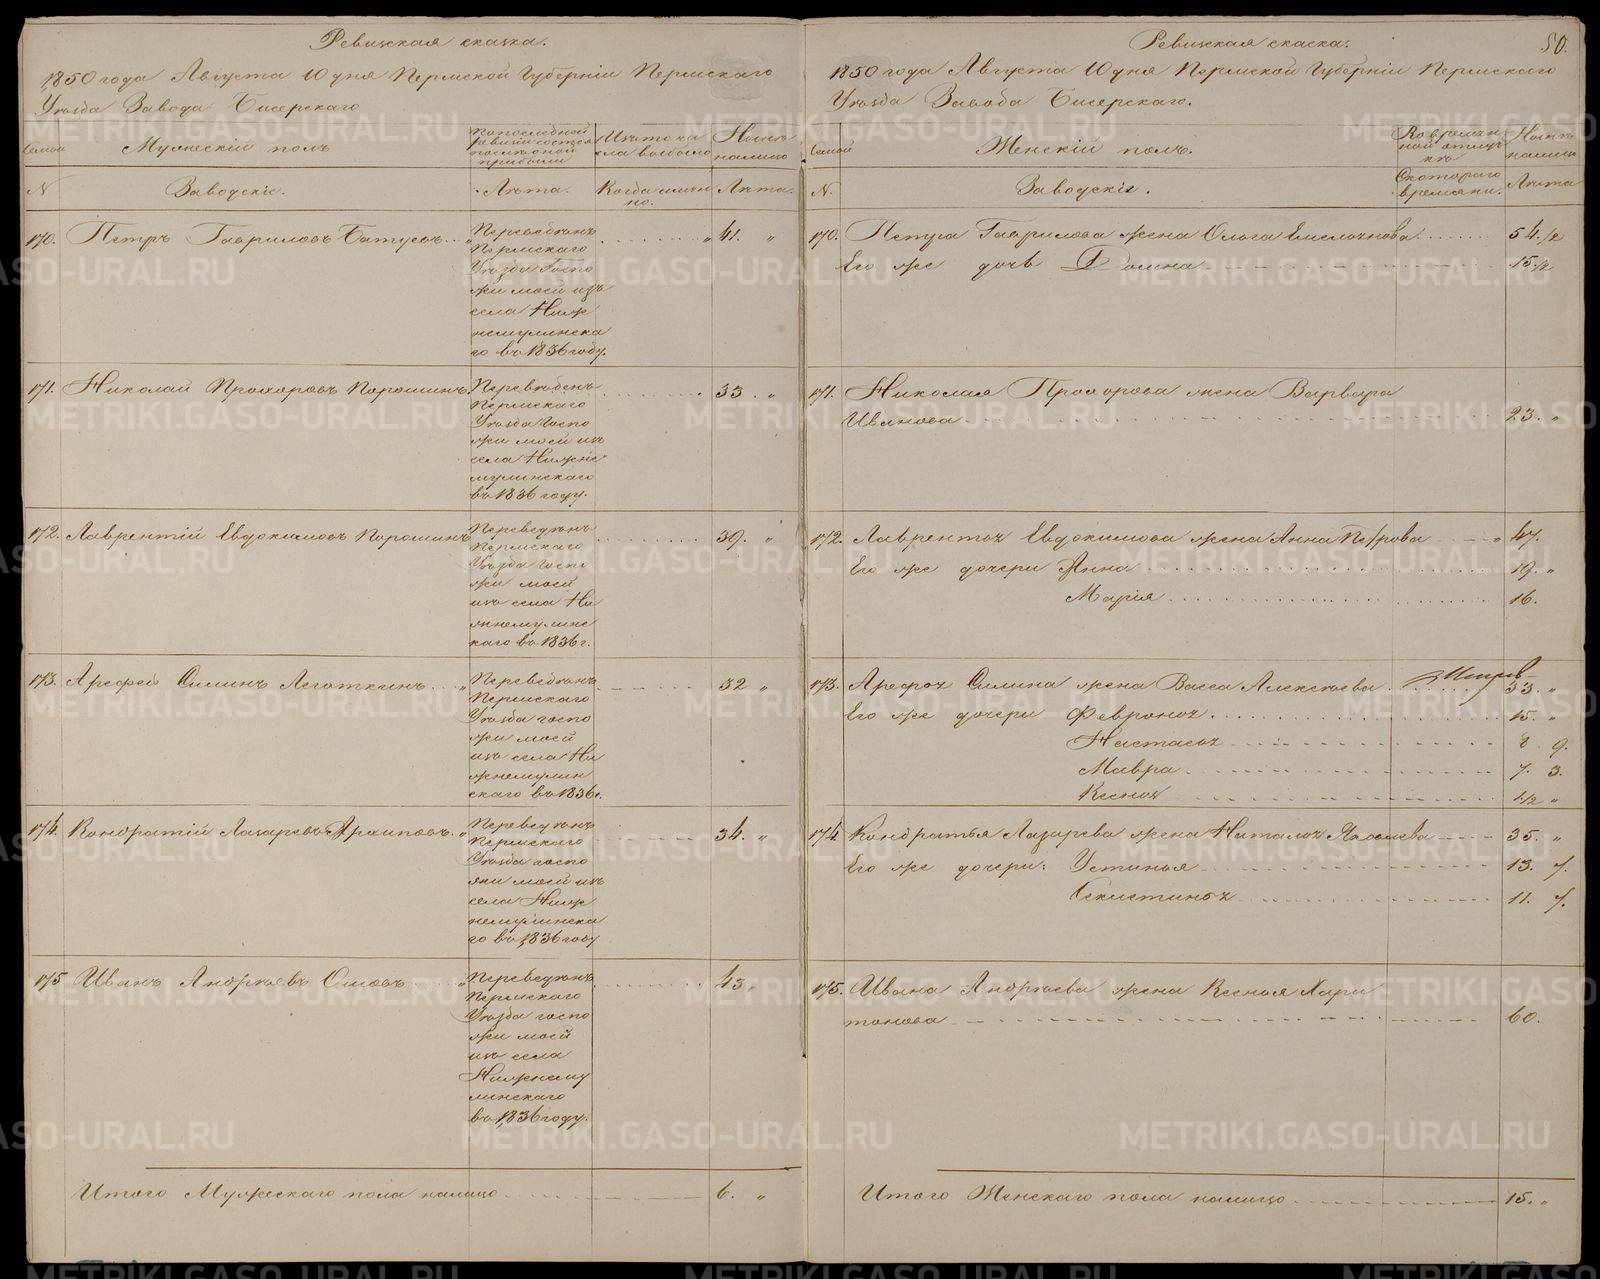 Ревизская сказка.
1850 года Августа 10 дня Пермской Губерніи Пермскаго
Уѣзда Завода Бисерскаго
Семьи
Мужескій полъ
По последней
ревизіи состояло
и после оной
прибыли
Изъ того чи
сла выбыло
Нынѣ
на лицо
N
Заводскіе.
Лѣта.
Когда имян
но.
Лѣта.
170. Петръ Гавриловъ Батуевъ . . . „
Переведенъ
Пермскаго
Уѣзда Госпо
жи моей изъ
села Ниж
немулинска
го въ 1836 году.
„ 41. „
171. Николай Прохоровъ Порошинъ.
Переведенъ
Пермскаго
Уѣзда Госпо
жи моей изъ
села Нижне
мулинскаго
въ 1836 году.
33. „
172. Лаврентій Евдокимовъ Порошинъ
Переведенъ
Пермскаго
Уѣзда Госпо
жи моей
изъ села Ни
жнемулинс
каго въ 1836 г.
39. „
173. Арефей Силинъ Леготкинъ . . . „
Переведенъ
Пермскаго
Уѣзда госпо
жи моей
изъ села Ни
жнемулин
скаго въ 1836 г.
32 „
174. Кондратій Лазаревъ Архиповъ. „
Переведенъ
Пермскаго
Уѣзда госпо
жи моей изъ
села Ниж
немулинска
го въ 1836 году
34. „
175 Иванъ Андрѣевъ . . . . „
Переведенъ
Пермскаго
Уѣзда госпо
жи моей
изъ села
Нижнему
линскаго
въ 1836 году.
43 „
Итого Мужескаго пола налицо 6. „
50.
Ревизская сказка.
1850 года Августа 10 дня Пермской Губерніи Пермскаго
Уѣзда Завода Бисерскаго.
Семьи
Женскій полъ.
Во времен
ной отлуч
кѣ
Нынѣ
налицо
N.
Заводскіе.
Съ котораго
времяни.
Лѣта
170. Петра Гаврилова жена Ольга 54. 1/2
Его же дочь 15. 1/2
171. Николая Прохорова жена Варвара
Иванова 23. „
172. Лаврентья Евдокимова жена Анна Петрова „ 47.
Его же дочери Анна 19. „
Марія 16.
173. Арефья Силина жена Васса Алексѣева 33. „
Его же дочери Февронья 15. „
Настасья 8 9.
Мавра 7. 3.
Ксенья 1/2 „
174 Кондратья Лазарева жена Наталья Яковлева 35. „
Его же дочери: Устинья 13. 7.
Секлетинья 11. 7.
175. Ивана Андрѣева жена Ксенья Хари
тонова 60.
Итого Женскаго пола налицо 15. „
METRIKI.GASO-URAL.RU